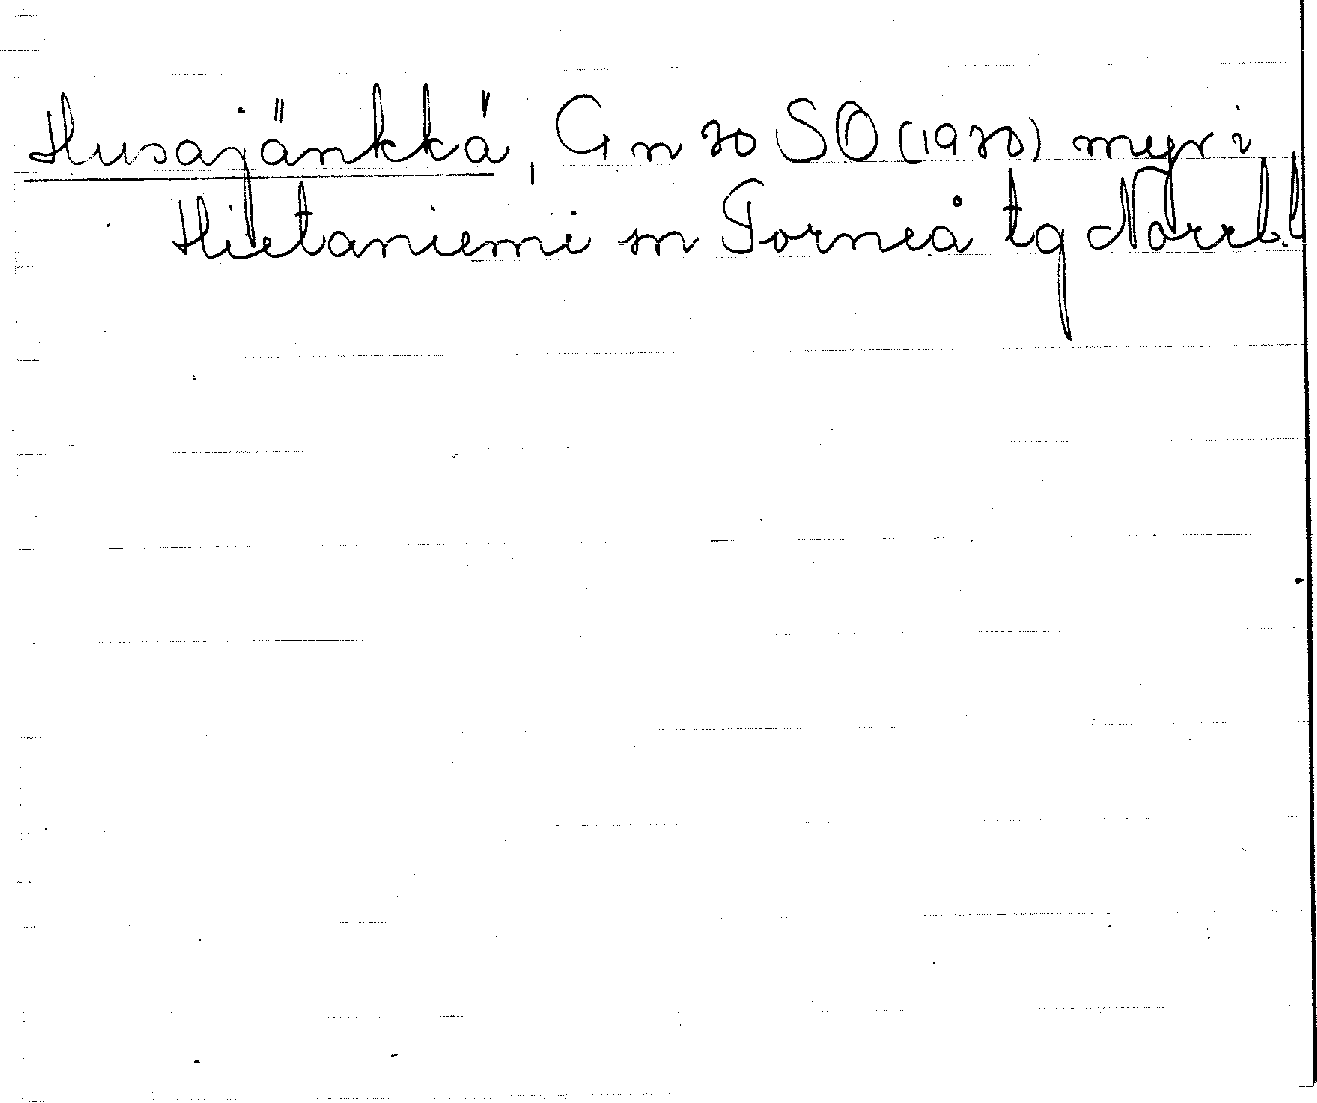 Husajänkkä, G n 20 SO (1920) myr i
Hietaniemi sn Torneå tg Norrb.l